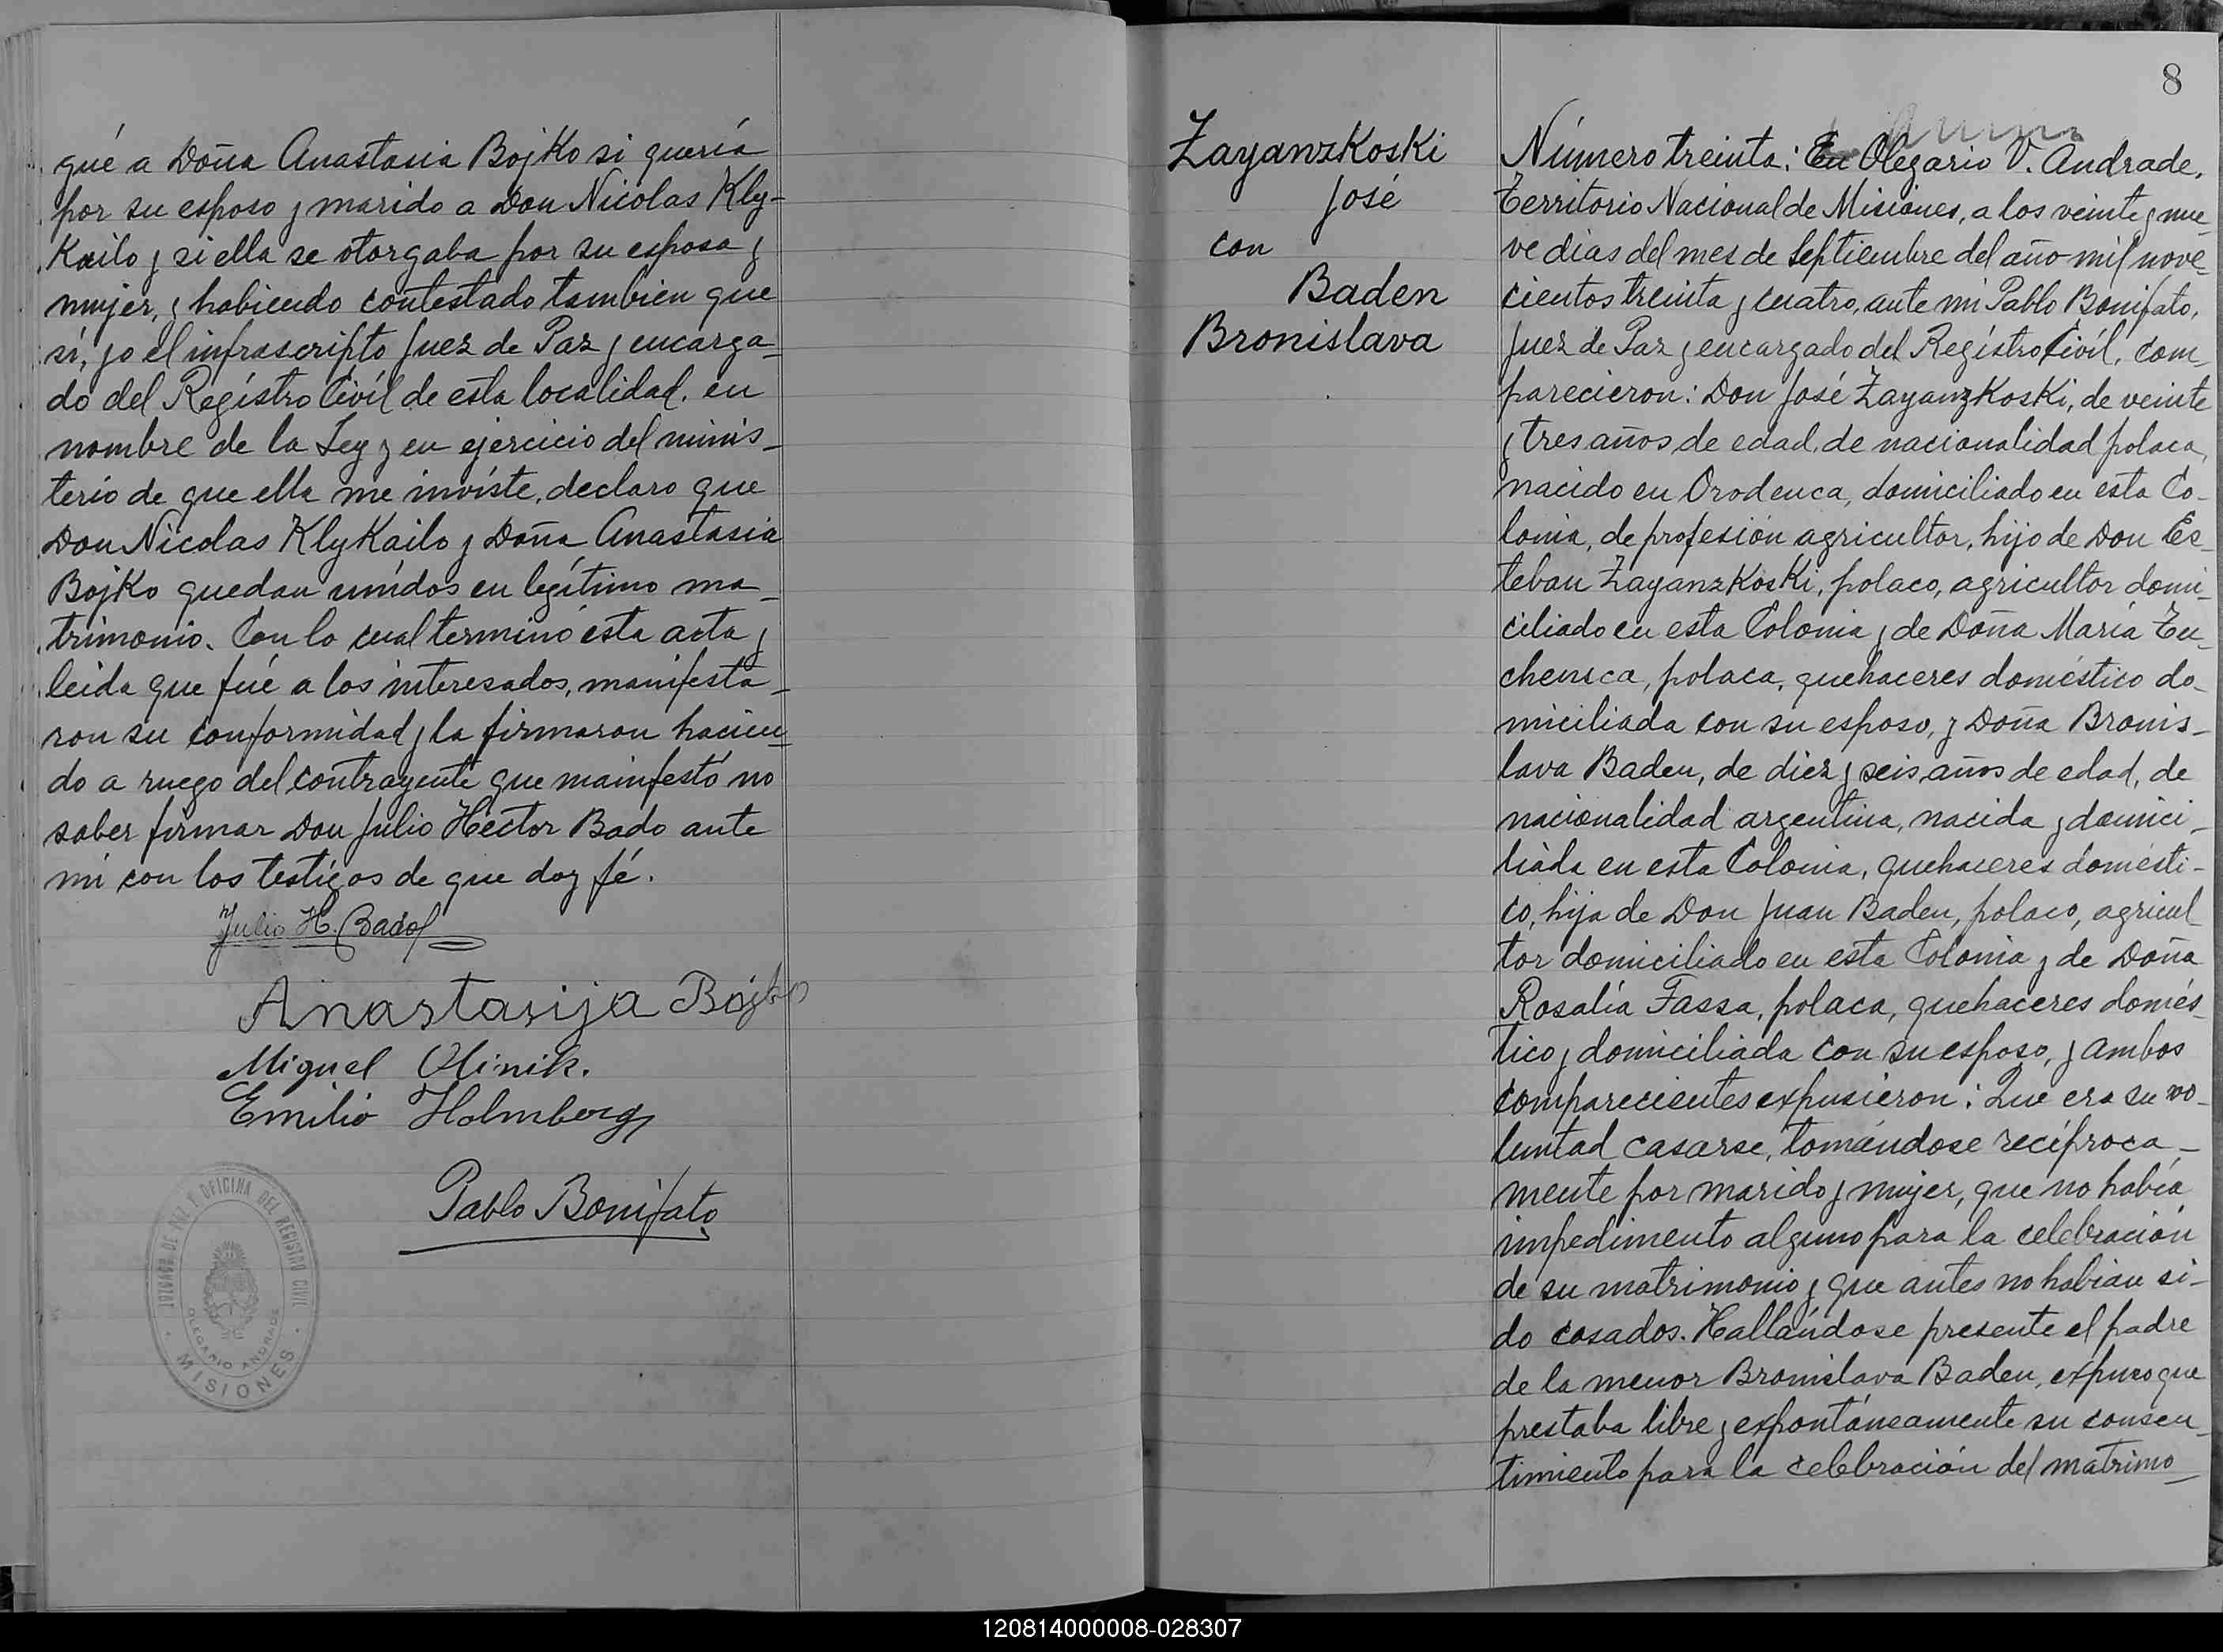 qué a Doña Anastasia Bojko si quería
por su esposo y marido a Don Nicolas Kly-
Kailo y si ella se otorgaba por su esposa y
mujer, y habiendo contestado tambien que
sí, yo el infrascripto Juez de Paz y encarga-
do del Regístro Civíl de esta localidad, en
nombre de la Ley y en ejercicio del minis-
terio de que ella me invíste, declaro que
Don Nicolas KlyKailo y Doña Anastasia
Bojko quedan unídos en legítimo ma-
trimonio. Con lo cual terminó esta acta y
leida que fué a los interesados, manifesta-
ron su conformidad y la firmaron hacien-
do a ruego del contrayente que mainfestó no
saber firmar Don Julio Héctor Bado ante
mí con los testigos de que doy fé.
Julio H. Bado
Anastasija Bojko
Miguel Olinik.
Emilio Holmberg
Pablo Bonifato
JUZGADO DE PAZ Y OFICINA DEL REGISTRO CIVIL
OLEGARIO ANDRADE
MISIONES
8
ZayanzKosKi
José
con
Baden
Bronislava
Número treinta: En Olegario V. Andrade,
Territorio Nacional de Misiones, a los veinte y nue-
ve dias del mes de Septiembre del año mil nove-
cientos treinta y cuatro, ante mi Pablo Bonifato,
Juez de Paz y encargado del Regístro Civíl, com-
parecieron: Don José ZayanzKosKi, de veinte
y tres años de edad, de nacionalidad polaca,
nacido en Orodenca, domiciliado en esta Co-
lonia, de profesión agricultor, hijo de Don Es-
teban ZayanzKosKi, polaco, agricultor domi-
ciliado en esta Colonia y de Doña María Eu-
chensca, polaca, quehaceres doméstico do-
miciliada con su esposo, y Doña Bronis-
lava Baden, de diez y seis años de edad, de
nacionalidad argentina, nacida y domici-
liada en esta Colonia, quehaceres domésti-
co, hija de Don Juan Baden, polaco, agricul
tor domiciliado en esta Colonia y de Doña
Rosalía Fassa, polaca, quehaceres domés-
tico y domiciliada con su esposo, y ambos
comparecientes expusieron: Que era su vo-
luntad casarse, tomándose recíproca-
mente por marido y mujer, que no había
impedimento alguno para la celebración
de su matrimonio y que antes no habian si-
do casados. Hallándose presente el padre
de la menor Bronislava Baden, expuso que
prestaba libre y expontáneamente su consen-
timiento para la celebración del matrimo-
120814000008-028307